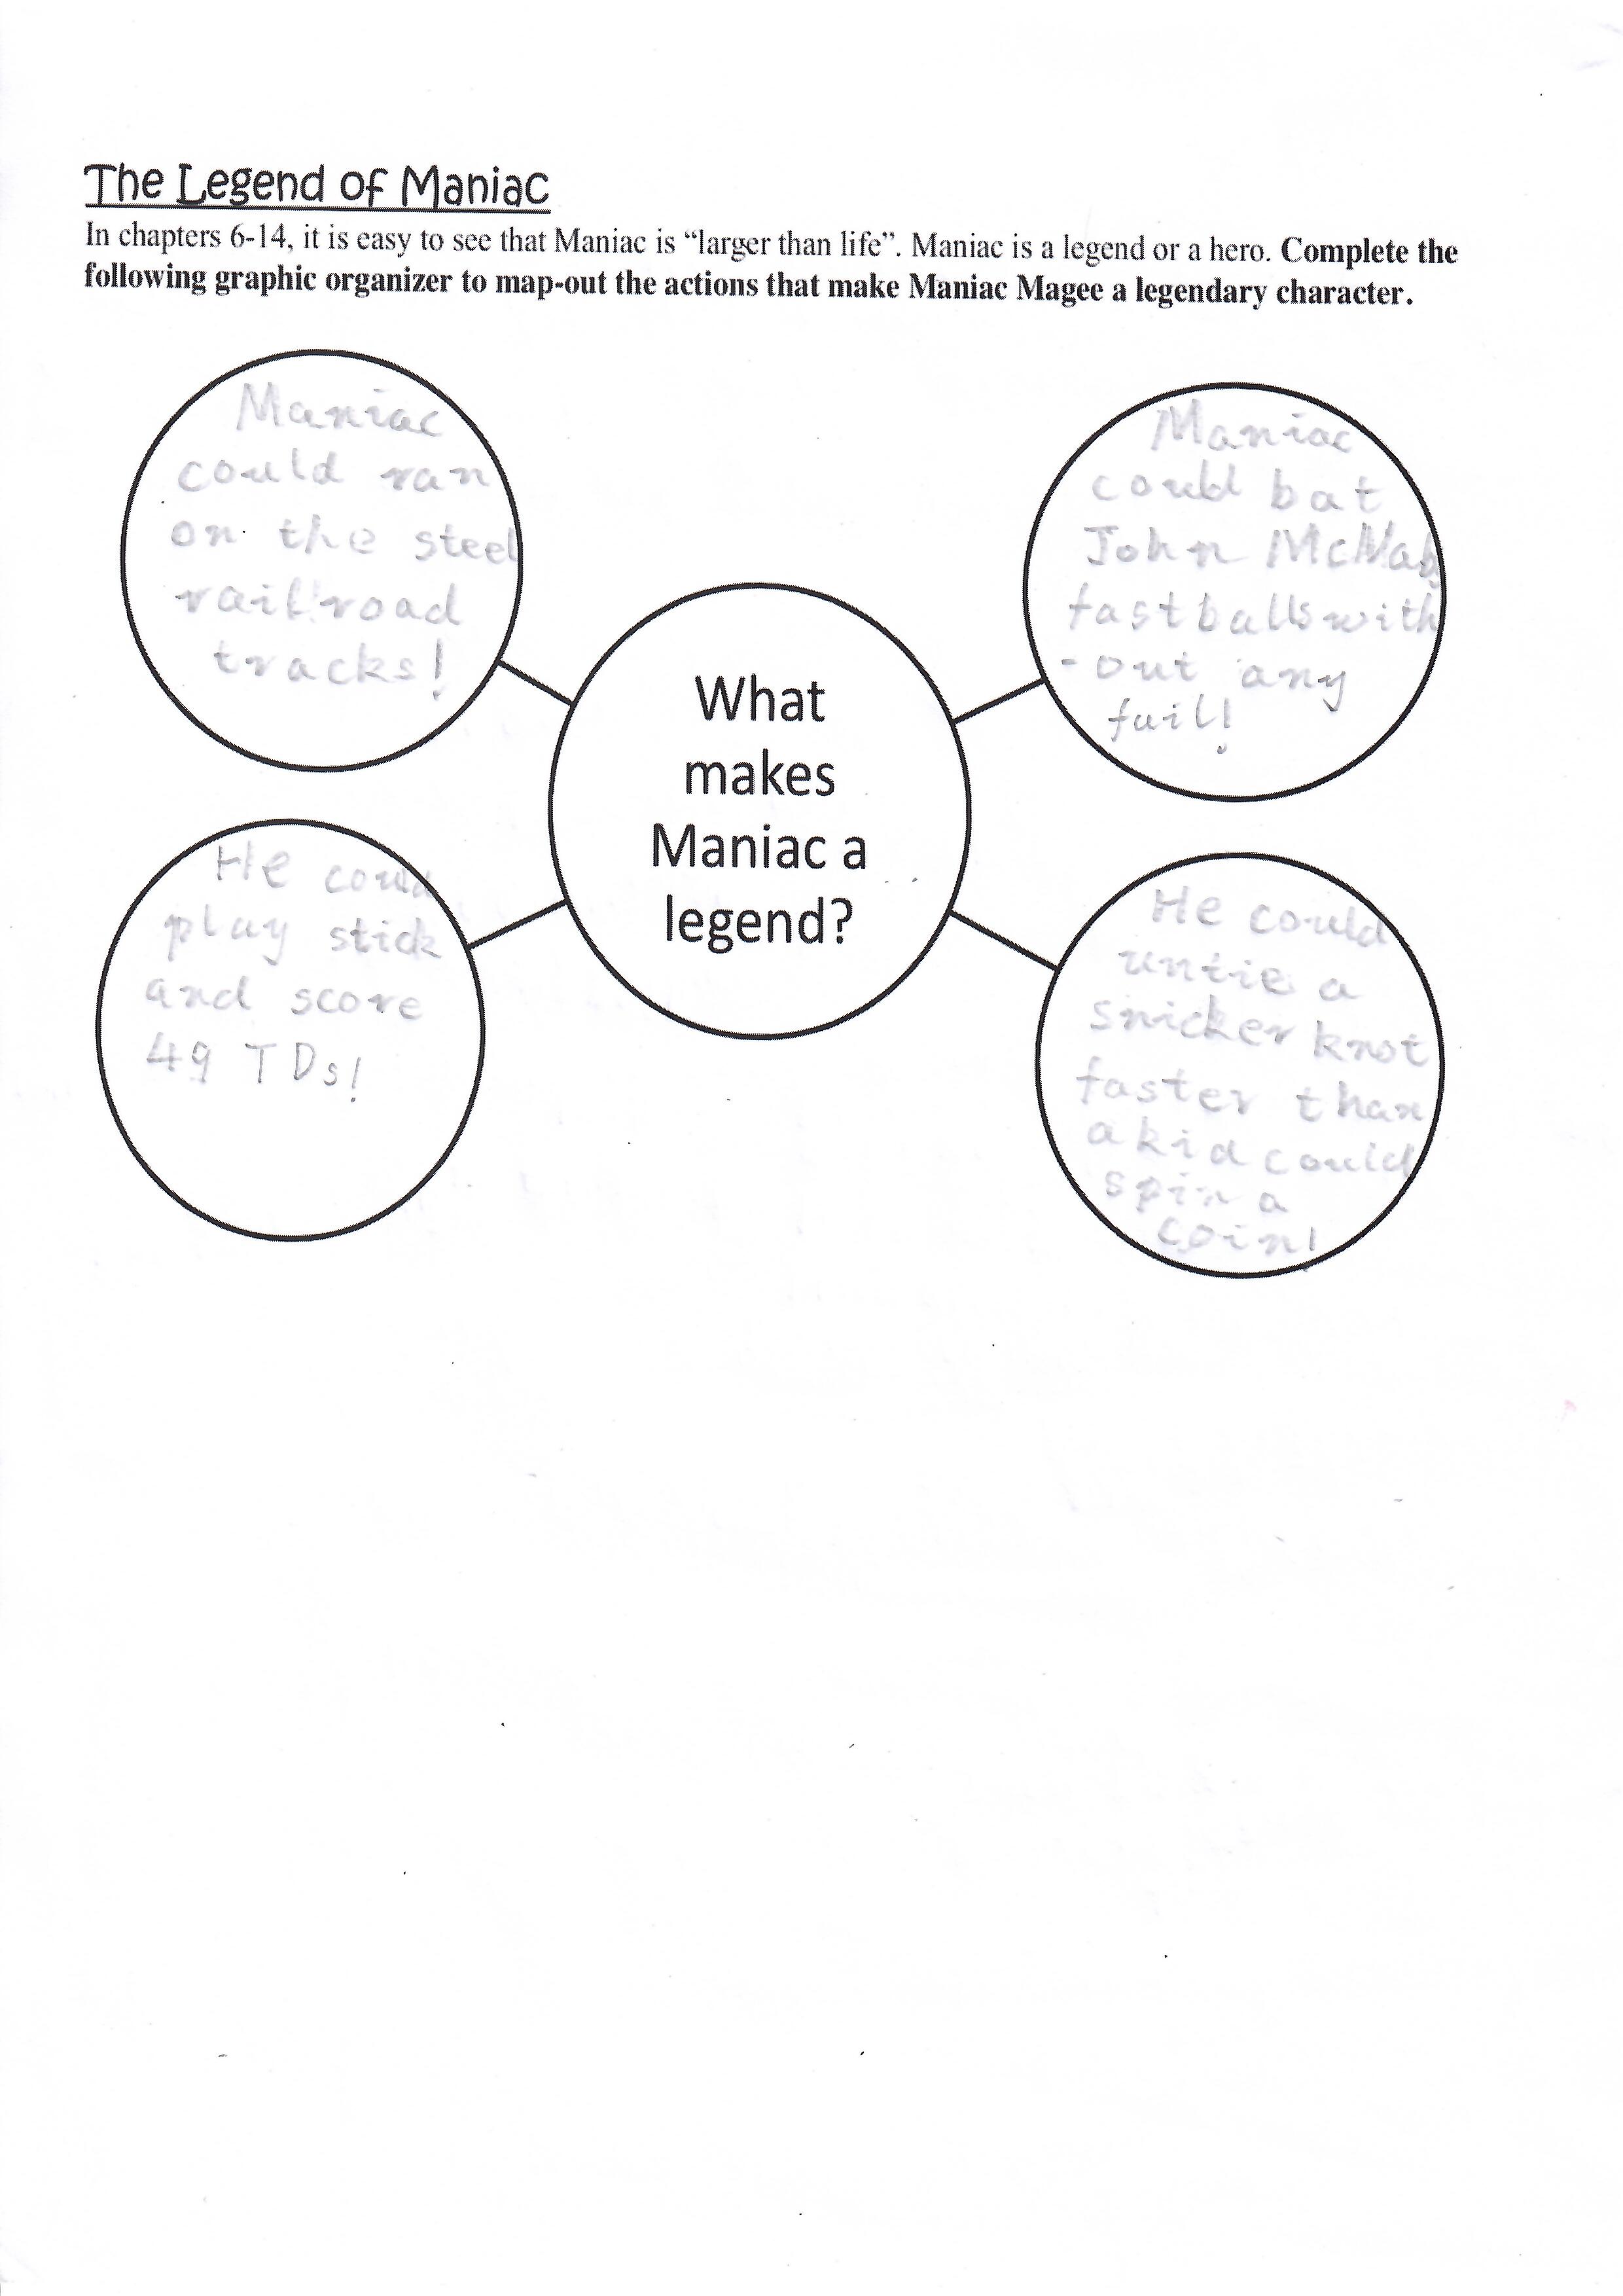 The Legend of Maniac
In chapters 6-14, it is easy to see that Maniac is “larger than life”. Maniac is a legend or a hero. Complete the
following graphic organizer to map-out the actions that make Maniac Magee a legendary character.
Maniac
could ran
on the steel
railroad
tracks!
Maniac
could bat
John McNabs
fastballs with
-out any
fail!
What
makes
Maniac a
legend?
He could
play stick
and score
49 TDs!
He could
untie a
snicker knot
faster than
a kid could
spin a
coin!